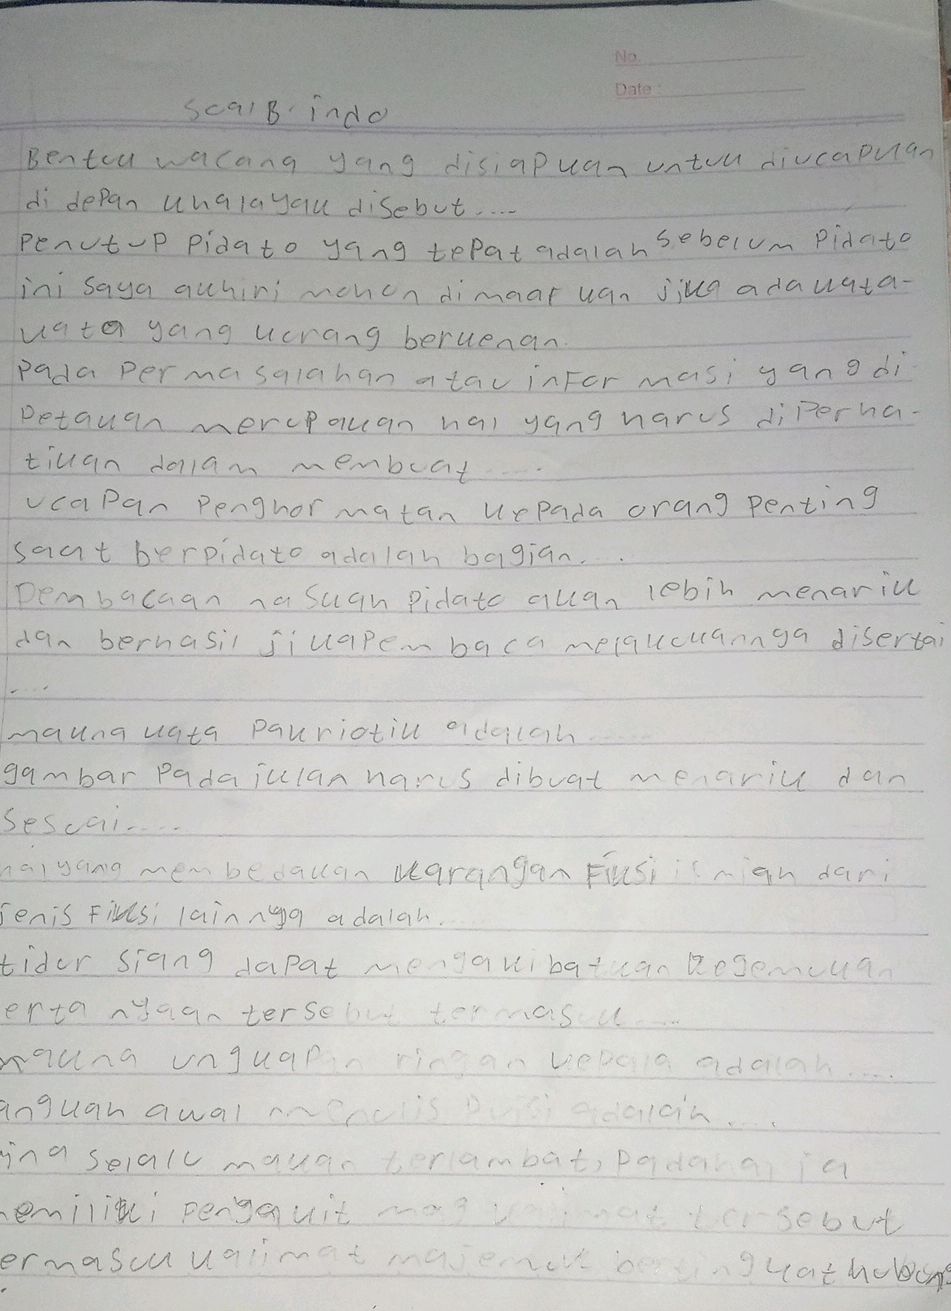 No.
Date :
Soal B. indo
Bentuk wacana yang disiapkan untuk diucapkan
di depan khalayak disebut....
Penutup Pidato yang tepat adalah sebelum Pidato
ini saya akhiri mohon di maaf kan jika ada kata-
kata yang kurang berkenan.
Pada Permasalahan atau informasi yang di
Petakan merupakan hal yang harus diperha-
tikan dalam membuat.....
ucapan Penghormatan kepada orang penting
saat berpidato adalah bagian....
Pembacaan naskah pidato akan lebih menarik
dan berhasil jika pembaca melakukannya disertai
....
makna kata Pakriotik adalah.....
gambar Pada iklan harus dibuat menarik dan
Sesuai.....
hal yang membedakan karangan Fiksi ilmiah dari
jenis Fiksi lainnya adalah....
tidur siang dapat mengakibatkan kegemukan
ertanyaan tersebut termasuk....
makna ungkapan ringan kepala adalah....
angkah awal menulis Puisi adalah....
ina selalu makan terlambat, padahal ia
memiliki penyakit mag kalimat tersebut
ermasuk kalimat majemuk bertingkat hubung